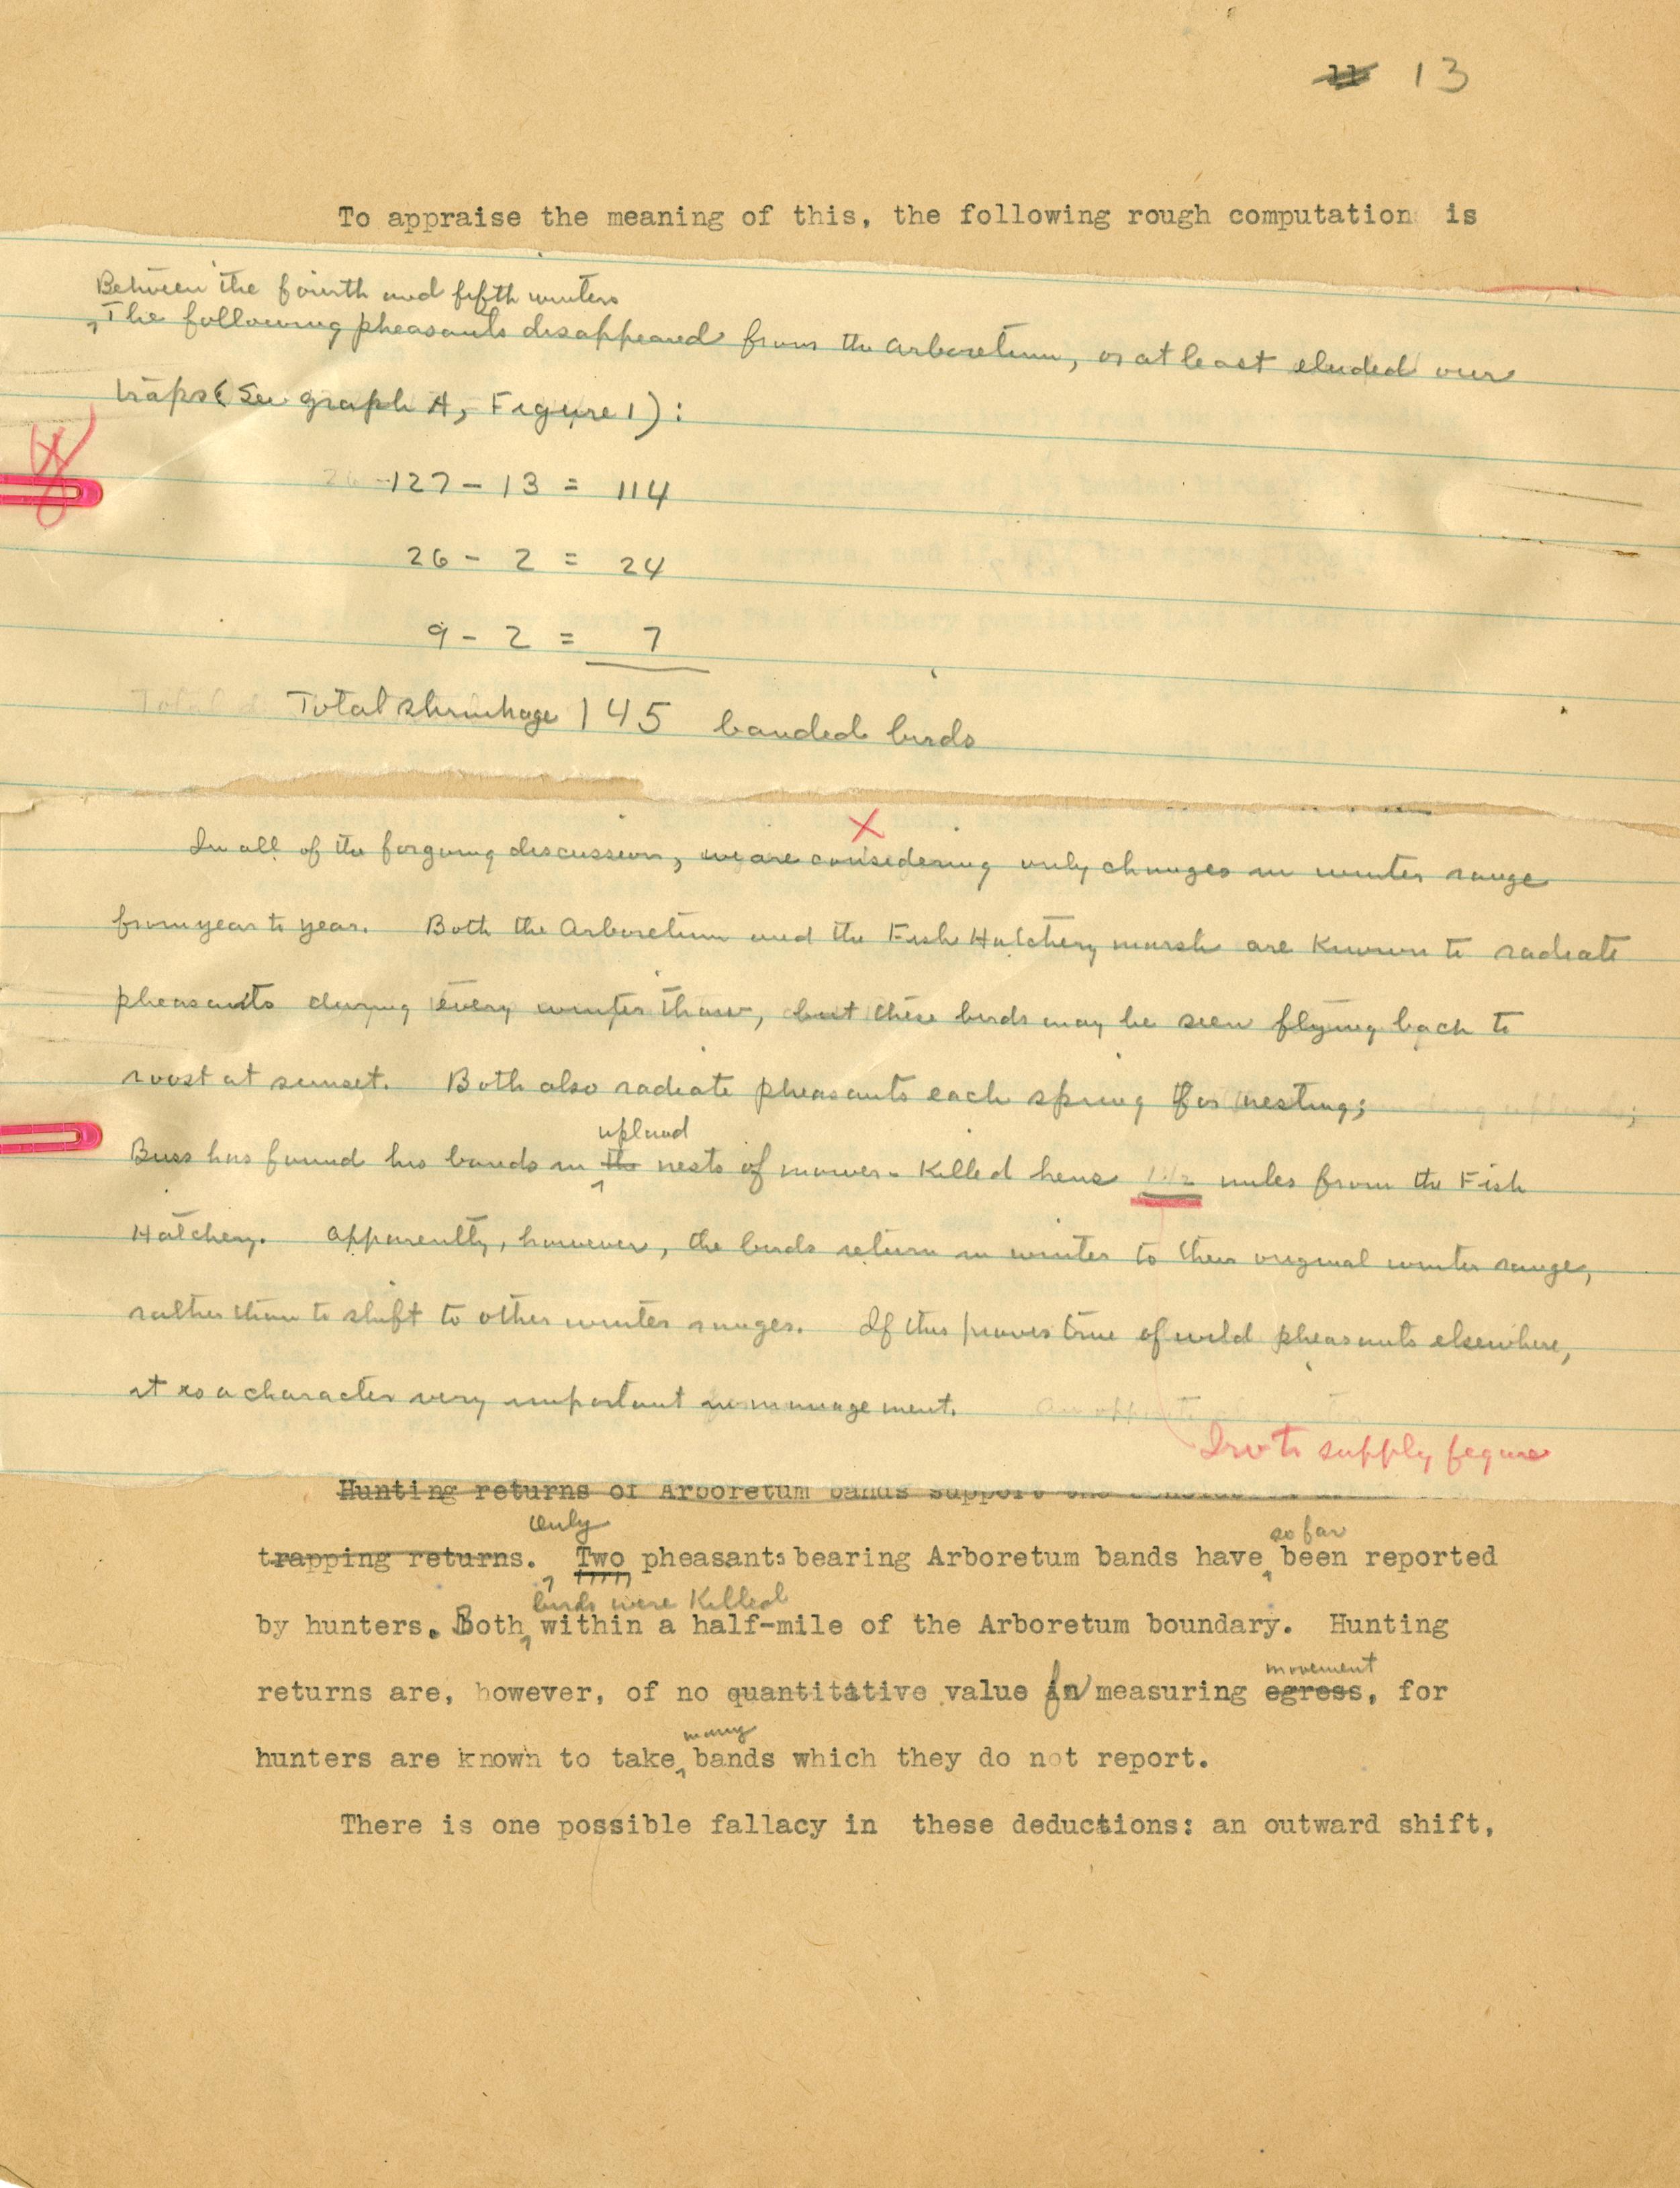 11 13
To appraise the meaning of this, the following rough computation is
Between the fourth and fifth winters
The following pheasants disappeared from the Arboretum, or at least eluded our
traps (See graph A, Figure 1):
127 - 13 = 114
26 - 2 = 24
9 - 2 = 7
Total shrinkage 145 banded birds
X
In all of the forgoing discussion, we are considering only changes in winter range
from year to year. Both the Arboretum and the Fish Hatchery marsh are known to radiate
pheasants during every winter thaw, but these birds may be seen flying back to
roost at sunset. Both also radiate pheasants each spring for nesting;
upland
Buss has found his bands in the nests of mower-killed hens 1 1/2 miles from the Fish
Hatchery. Apparently, however, the birds return in winter to their original winter range,
rather than to shift to other winter ranges. If this proves true of wild pheasants elsewhere,
it is a character very important in management.
Irv to supply figure
Hunting returns of Arboretum bands support the
Only so far
trapping returns. Two pheasants bearing Arboretum bands have been reported
birds were killed
by hunters. Both within a half-mile of the Arboretum boundary. Hunting
movement
returns are, however, of no quantitative value in measuring egress, for
many
hunters are known to take bands which they do not report.
There is one possible fallacy in these deductions: an outward shift,